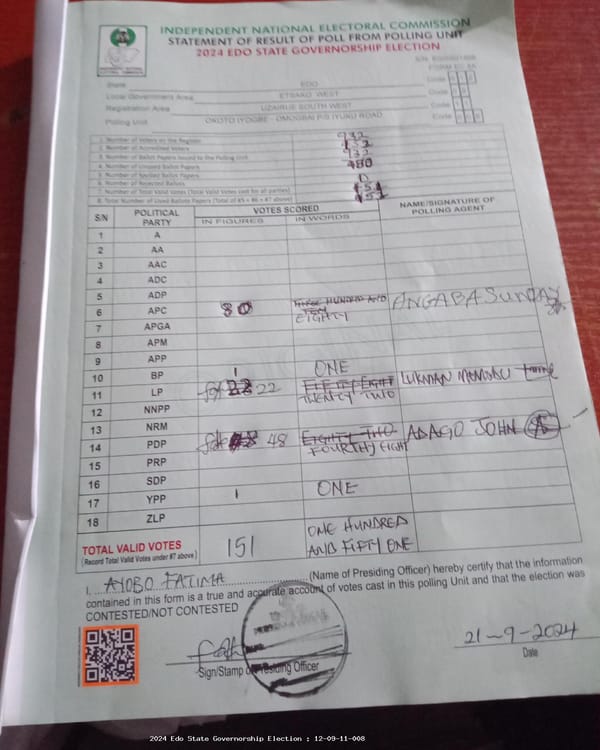 INDEPENDENT NATIONAL ELECTORAL COMMISSION
STATEMENT OF RESULT OF POLL FROM POLLING UNIT
2024 EDO STATE GOVERNORSHIP ELECTION
FORM EC 8A
State EDO Code
Local Government Area ETSAKO WEST Code
Registration Area UZAIRUE SOUTH WEST Code
Polling Unit OKOTO IYOGBE - OMOGBAI P/S IYUKU ROAD Code
1. Number of Voters on the Register 932
2. Number of Accredited Voters
3. Number of Ballot Papers Issued to the Polling Unit 932
4. Number of Unused Ballot Papers 780
5. Number of Spoiled Ballot Papers 0
6. Number of Rejected Ballots
7. Number of Total Valid Votes (Total Valid Votes cast for all parties) 151
8. Total Number of Used Ballot Papers (Total of #5 + #6 + #7 above)
S/N POLITICAL PARTY VOTES SCORED NAME/SIGNATURE OF POLLING AGENT
IN FIGURES IN WORDS
1 A
2 AA
3 AAC
4 ADC
5 ADP
6 APC 80 THREE HUNDRED AND TEN EIGHTY ANGABA SUNDAY
7 APGA
8 APM
9 APP
10 BP 1 ONE
11 LP 22 FIFTY EIGHT TWENTY TWO LUKMAN
12 NNPP
13 NRM
14 PDP 48 EIGHTY TWO FOURTHY EIGHT ADAGO JOHN
15 PRP
16 SDP
17 YPP 1 ONE
18 ZLP
TOTAL VALID VOTES 151 ONE HUNDRED AND FIFTY ONE
(Record Total Valid Votes under #7 above)
I, AYOBO FATIMA (Name of Presiding Officer) hereby certify that the information
contained in this form is a true and accurate account of votes cast in this polling Unit and that the election was
CONTESTED/NOT CONTESTED
21-9-2024
Sign/Stamp of Presiding Officer Date
2024 Edo State Governorship Election : 12-09-11-008